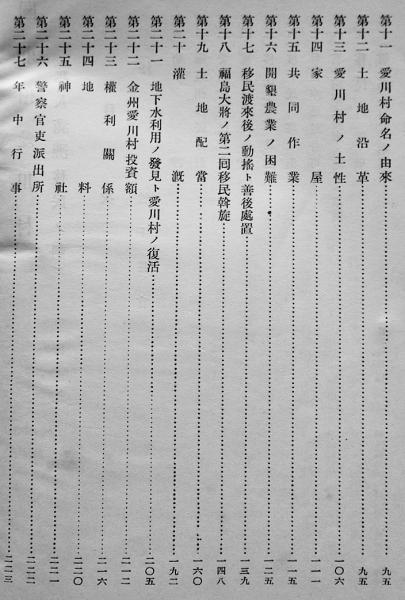 第十一 愛川村命名ノ由來……九五
第十二 土地沿革……九五
第十三 愛川村ノ土性……一〇六
第十四 家屋……一一一
第十五 共同作業……一一五
第十六 開墾農業ノ困難……一二五
第十七 移民渡來後ノ動搖ト善後處置……一三九
第十八 福島大將ノ第二囘移民斡旋……一四八
第十九 土地配當……一六〇
第二十 灌漑……一九二
第二十一 地下水利用ノ發見ト愛川村ノ復活……二〇五
第二十二 金州愛川村投資額……二一二
第二十三 權利關係……二一六
第二十四 地料……二二〇
第二十五 神社……二二一
第二十六 警察官吏派出所……二二二
第二十七 年中行事……二二三